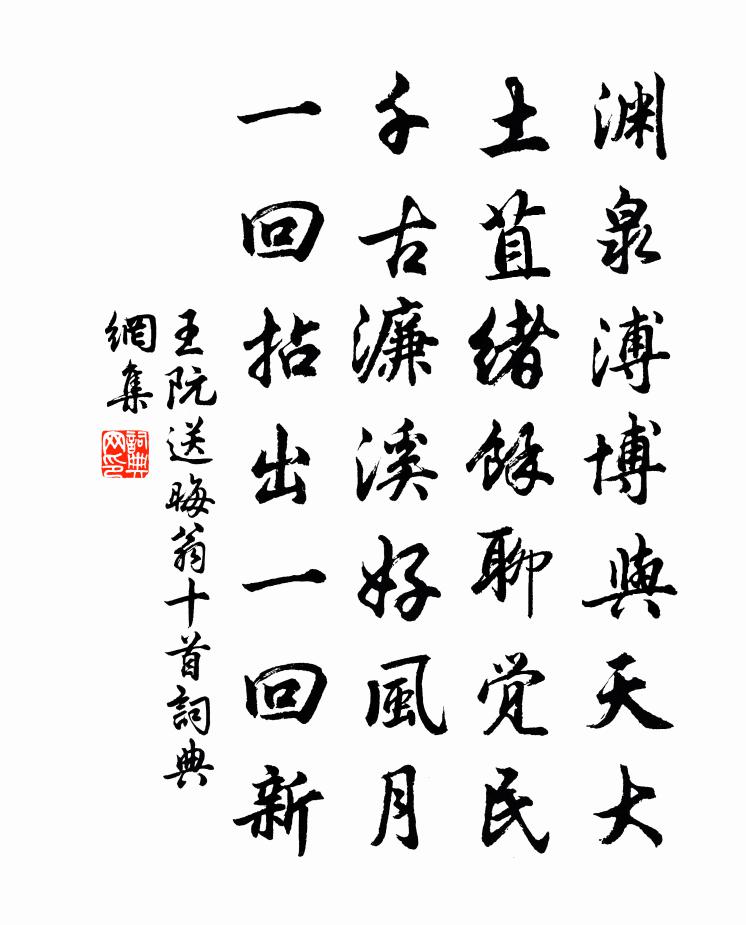 渊泉溥博與天大
土苴緒餘聊覚民
千古濂溪好風月
一回拈出一回新
王阮送晦翁十首詞典
網集
詞典網印